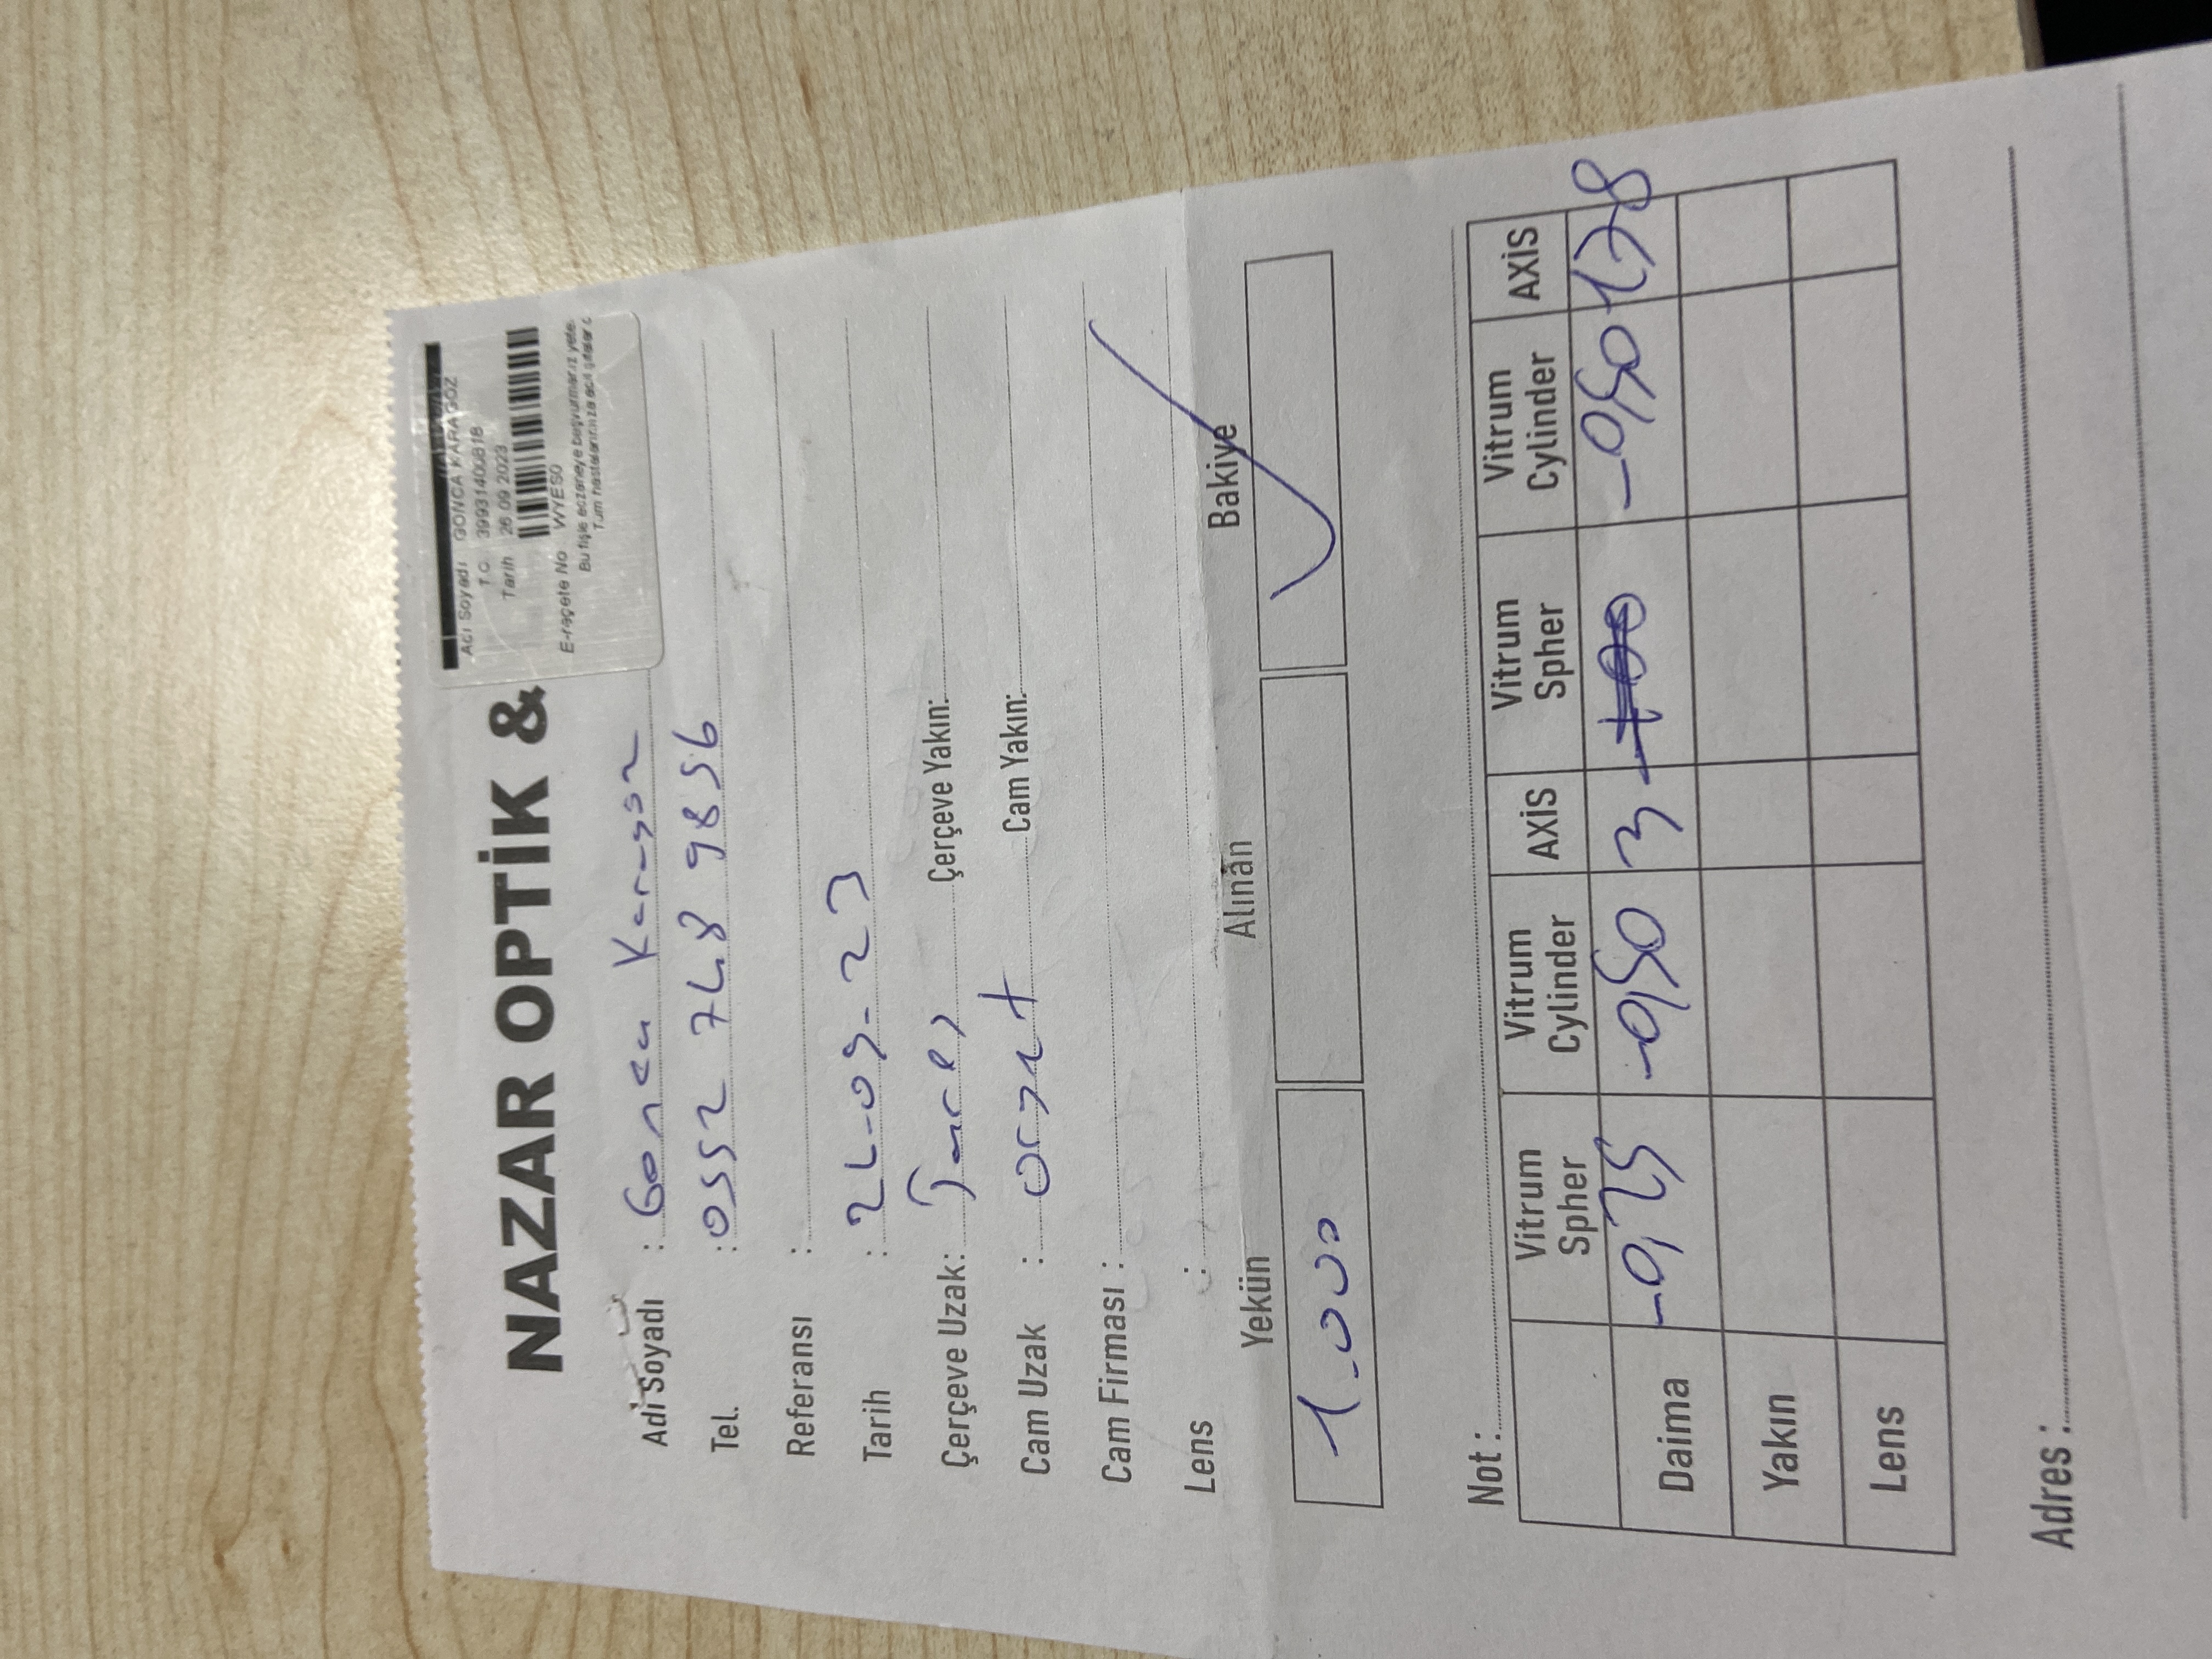 NAZAR OPTİK &
Adı Soyadı GONCA KARAGÖZ
T.C. 39931400818
Tarih 26.09.2023
E-reçete No WYES0
Bu fişle eczaneye başvurmanız yete
Tüm hastalarımıza acil şifalar d
Adi Soyadı : Gonca Karagöz
Tel. : 0552 748 9856
Referansı :
Tarih : 26-09-23
Çerçeve Uzak: Çerçeve Yakın:
Cam Uzak : Cam Yakın:
Cam Firması :
Lens :
Yekün Alınan Bakiye
1.000
Not :
Vitrum Spher Vitrum Cylinder AXİS Vitrum Spher Vitrum Cylinder AXİS
Daima -0,25 -0,50 3 -0,50 178
Yakın
Lens
Adres :